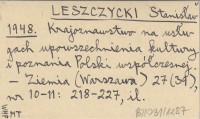 LESZCZYCKI Stanisław
1948. Krajoznawstwo na usłu-
gach upowszechnienia kultury
i poznania Polski współczesnej.
— Ziemia (Warszawa) 27 (39),
nr 10-11: 218-227, il.
MT